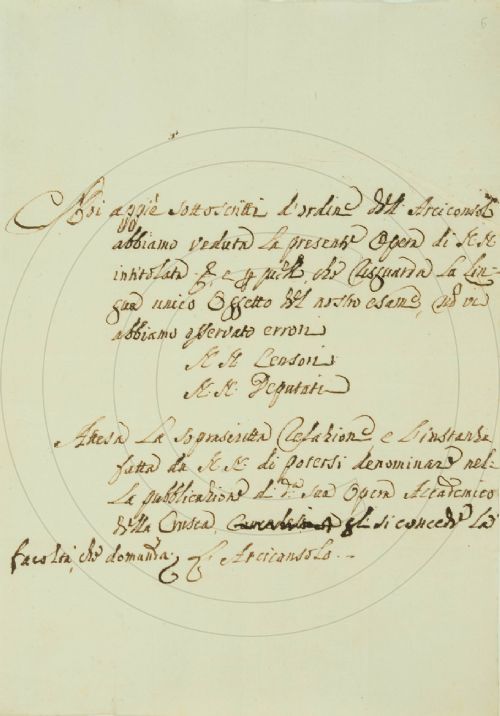 6
Noi appiè sottoscritti d'ordine dell' Arciconsolo
abbiamo veduta la presente Opera di N N
intitolata &c. e p quel, che risguarda la lin-
gua unico Oggetto del nostro esame, nō vi
abbiamo osservato errori
N. N. Censori
N. N. Deputati
Attesa la soprascritta Relazione e l'instanza
fatta da N. N. di potersi denominare nel-
la pubblicazione d.ª sua Opera Accademico
della Crusca, gl si concede la
facoltà, che domanda. L'Arciconsolo.